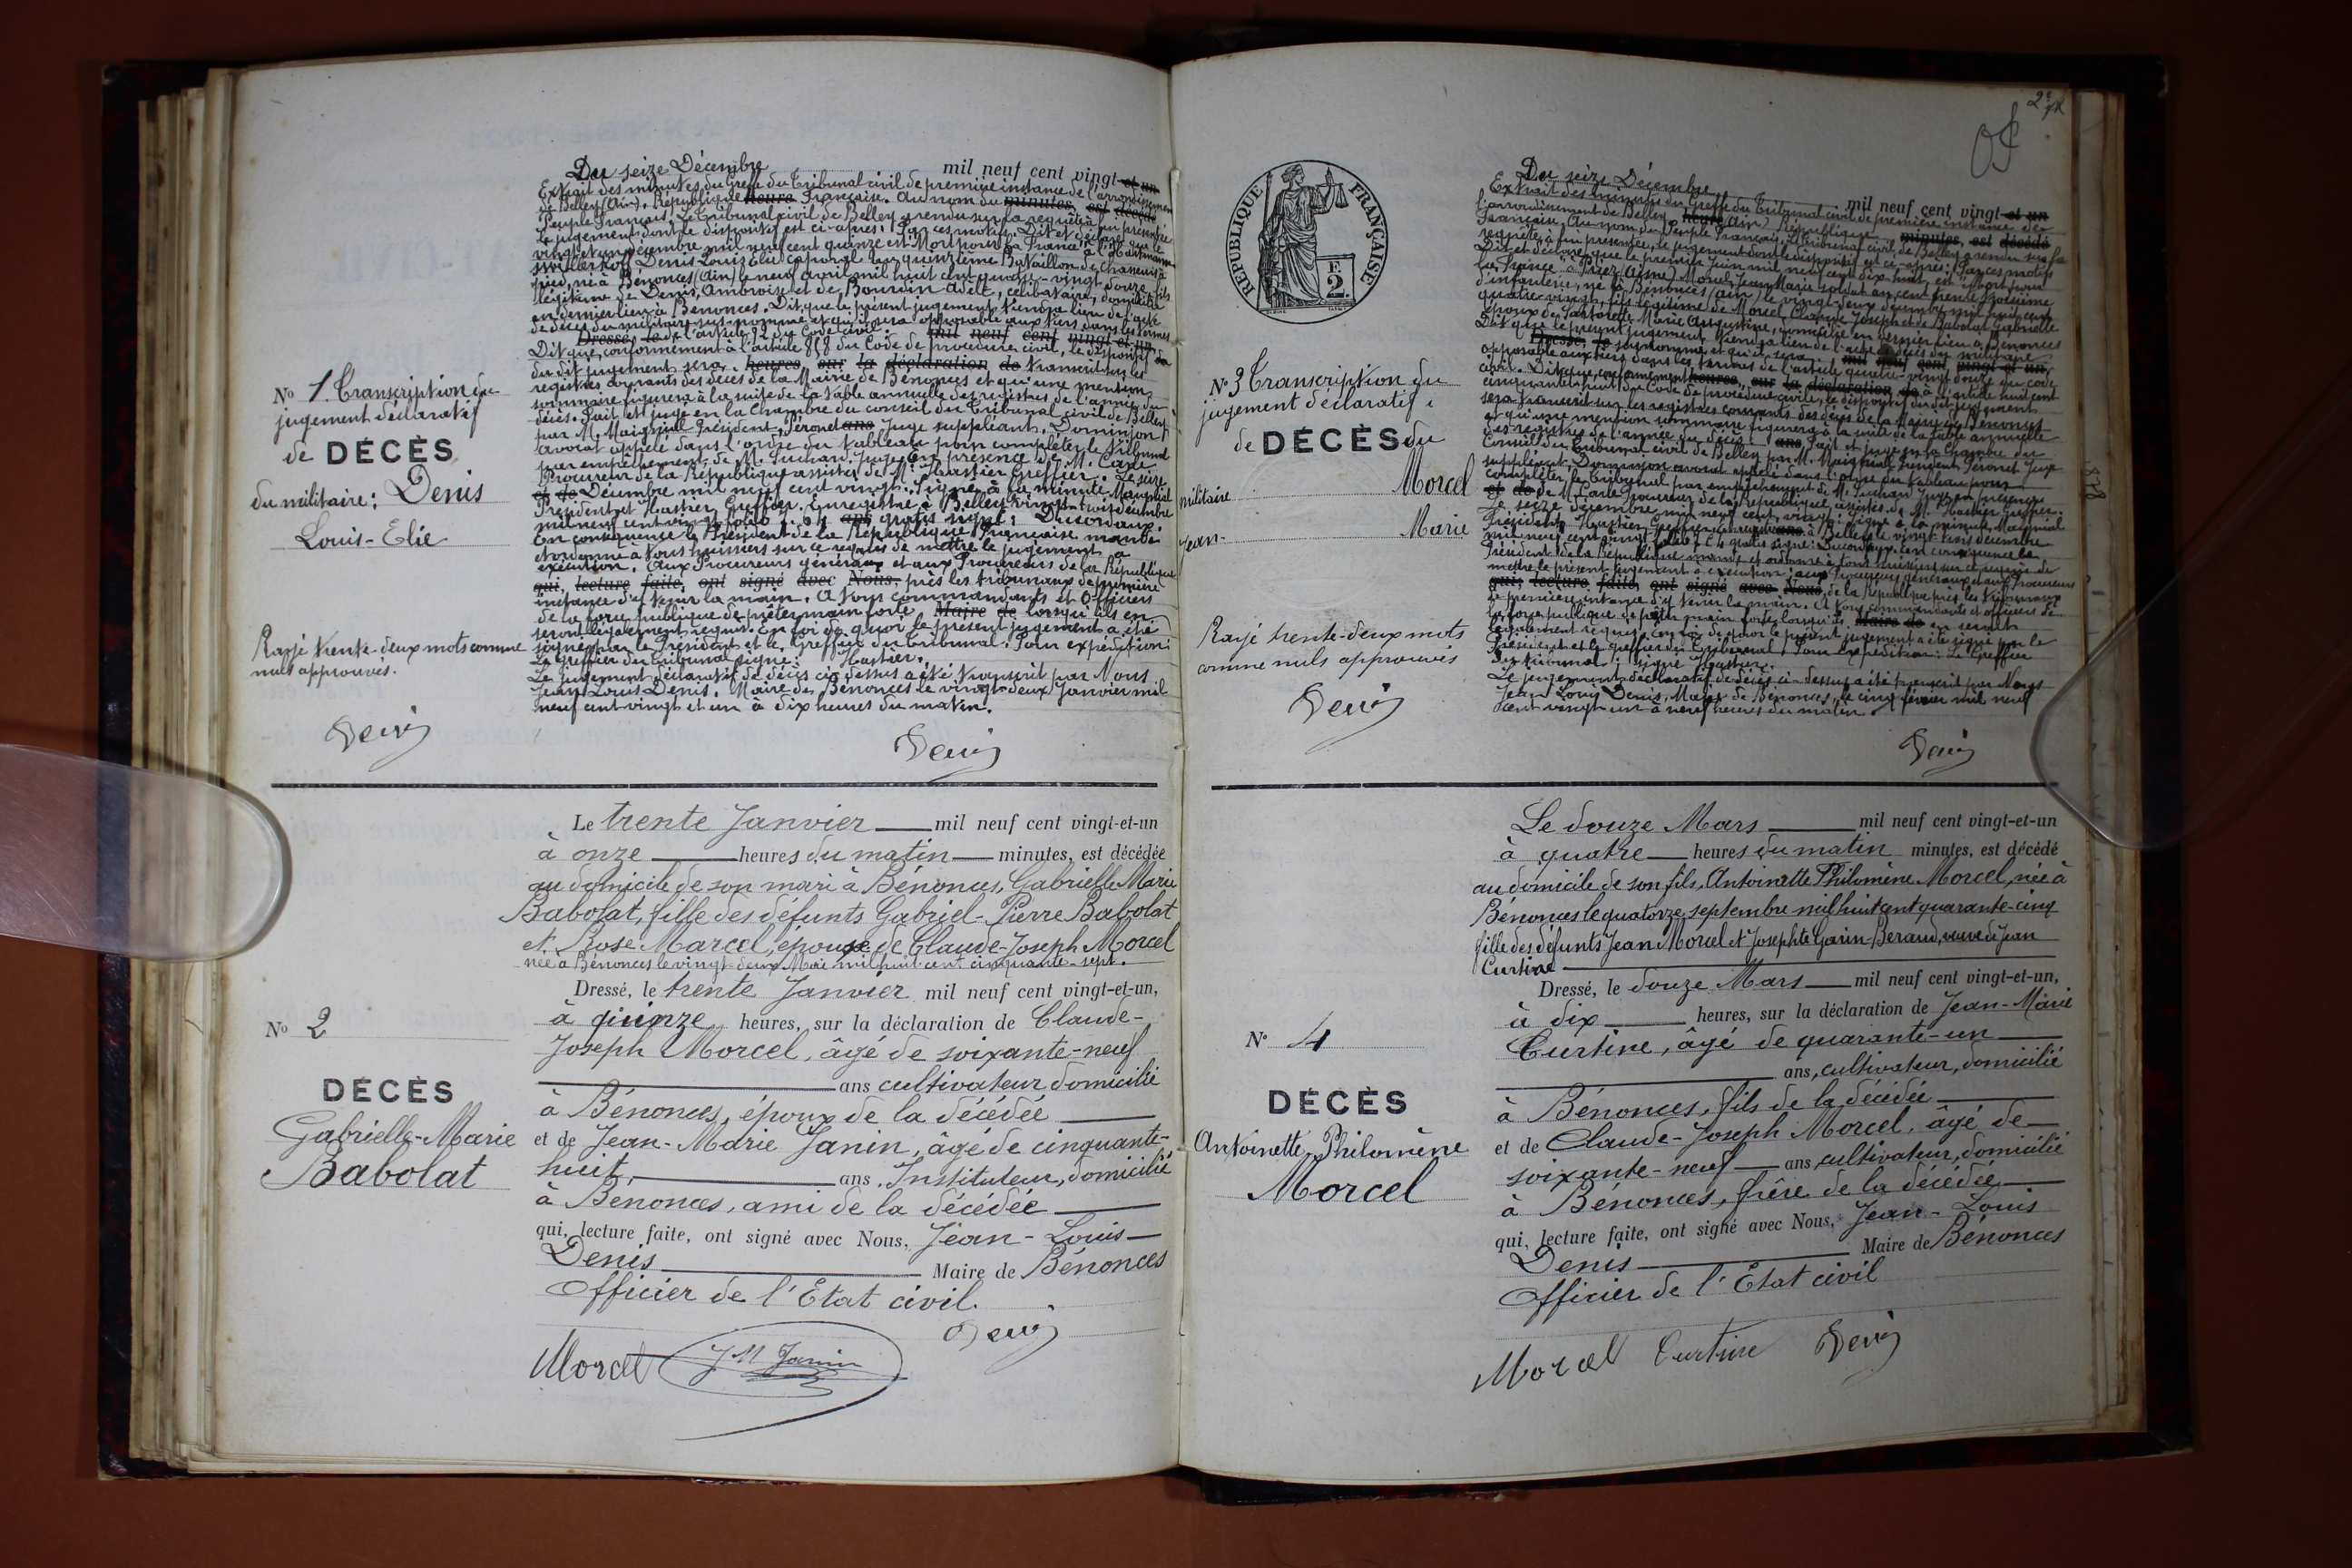 Du seize Décembre mil neuf cent vingt et un
Extrait des minutes du Greffe du Tribunal civil de première instance de l'arrondissement
de Belley (Ain). République heure Française. Au nom du minutes, est décédé
Peuple Français. Le tribunal civil de Belley a rendu sur la requête à fin présentée
le jugement dont le dispositif est ci-après: Par ces motifs. Dit et déclare que le
vingt et un Décembre mil neuf cent quinze est Mort pour la France à l'Hartmann
swillerkopf Denis Louis Elie caporal au quinzième Bataillon de chasseurs à
pied, né à Bénonces (Ain) le neuf avril mil huit cent quatre-vingt douze, fils
légitime de Denis, Ambroise et de Bourdin Adèle, célibataire, domicilié
en dernier lieu à Bénonces. Dit que le présent jugement tiendra lieu de l'acte
de décès du militaire sus-nommé et qu'il sera opposable aux tiers dans les termes
Dressé, le de l'article 92 du Code civil. mil neuf cent vingt et un
Dit que, conformément à l'article 858 du Code de procédure civil, le dispositif
du dit jugement sera heures sur la déclaration de transcrit sur les
registres courants des décès de la Mairie de Bénonces et qu'une mention
sommaire figurera à la suite de la table annuelle des registres de l'année du
décès. Fait et jugé en la Chambre du conseil du Tribunal civil de Belley
par M. Maigniel Président, Péronet ans Juge suppléant. Dominjon
avocat appelé dans l'ordre du tableau pour compléter le Tribunal
par empêchement de M. Luchard Juge. En présence de M. Carle
Procureur de la République assistés de Me Hastier Greffier. Le seize
et de Décembre mil neuf cent vingt. Signé à la minute Maigniel
Président et Hastier Greffier. Enregistré à Belley vingt-trois décembre
mil neuf cent vingt folio ans gratis signé: Ducordaux.
En conséquence le Président de la République Française mande
et ordonne à tous huissiers sur ce requis de mettre le jugement à
exécution. Aux Procureurs généraux et aux Procureurs de la République
qui, lecture faite, ont signé avec Nous, près les tribunaux de première
instance d'y tenir la main. A tous commandants et Officiers
de la force publique de prêter main forte Maire de lorsqu'ils en
seront légalement requis. En foi de quoi le présent jugement a été
signé par le Président et le Greffier du Tribunal. Pour expédition:
Le Greffier du Tribunal signé: Hastier.
Le jugement déclaratif de décès ci-dessus a été transcrit par Nous
Jean Louis Denis. Maire de Bénonces le vingt-deux Janvier mil
neuf cent vingt et un à dix heures du matin.
No 1. Transcription du
jugement déclaratif
de DÉCÈS
du militaire: Denis
Louis-Elie
Rayé trente-deux mots comme
nuls approuvés.
Denis
Denis
Le trente Janvier mil neuf cent vingt-et-un
à onze heures du matin minutes, est décédée
au domicile de son mari à Bénonces, Gabrielle Marie
Babolat, fille des défunts Gabriel-Pierre Babolat
et Rose Marcel, épouse de Claude-Joseph Morcel
née à Bénonces le vingt-deux Mai mil huit cent cinquante-sept.
Dressé, le trente Janvier mil neuf cent vingt-et-un,
à quinze heures, sur la déclaration de Claude-
Joseph Morcel, âgé de soixante-neuf
ans cultivateur domicilié
à Bénonces, époux de la décédée
et de Jean-Marie Janin, âgé de cinquante-
huit, ans, Instituteur, domicilié
à Bénonces, ami de la décédée
qui, lecture faite, ont signé avec Nous, Jean-Louis
Denis Maire de Bénonces
Officier de l'Etat civil.
No 2
DÉCÈS
Gabrielle-Marie
Babolat
Denis
Morcel J M Janin
2e
RÉPUBLIQUE FRANÇAISE
F.
2
Du seize Décembre mil neuf cent vingt et un
Extrait des minutes du Greffe du Tribunal civil de première instance de
l'arrondissement de Belley heure (Ain) République minutes, est décédé
Française. Au nom du Peuple Français. Le Tribunal civil de Belley a rendu sur la
requête à fin présentée, le jugement dont le dispositif est ci-après: Par ces motifs
Dit et déclare que le premier Juin mil neuf cent dix-huit, est mort pour
la France à (Aisne) Morcel Jean Marie soldat au cent trente troisième
d'infanterie, né à Bénonces (Ain) le vingt-deux décembre mil huit cent
quatre-vingt, fils légitime de Morcel Claude Joseph et de Babolat Gabrielle
époux de Marie Augustine, domicilié en dernier lieu à Bénonces
Dit que le présent jugement tiendra lieu de l'acte de décès du militaire
Dressé, le susnommé et qu'il sera mil neuf cent vingt et un,
opposable aux tiers dans les termes de l'article quatre-vingt douze du code
civil. Dit que, conformément heures, sur la déclaration de à l'article huit cent
cinquante-huit du Code de procédure civile, le dispositif du dit jugement
sera transcrit sur les registres courants des décès de la Mairie de Bénonces
et qu'une mention sommaire figurera à la suite de la table annuelle
des registres de l'année du décès. ans Fait et jugé en la Chambre du
Conseil du Tribunal civil de Belley par M. Maigniel Président Péronet Juge
suppléant. Dominjon avocat appelé dans l'ordre du tableau pour
compléter le Tribunal par empêchement de M. Luchard Juge en présence
et de de M. Carle Procureur de la République, assistés de Me Hastier Greffier.
Le seize décembre mil neuf cent vingt. Signé à la minute, Maigniel
Président, Hastier Greffier. Enregistré ans à Belley le vingt-trois décembre
mil neuf cent vingt folio gratis signé: Ducordaux. En conséquence le
Président de la République mande et ordonne à tous huissiers sur ce requis de
mettre le présent jugement à exécution, aux Procureurs généraux et aux Procureurs
qui, lecture faite, ont signé avec Nous, de la République près les Tribunaux
de première instance d'y tenir la main. A tous commandants et officiers de
la force publique de prêter main forte lorsqu'ils Maire de en seront
légalement requis. En foi de quoi le présent jugement a été signé par le
Président et le greffier du Tribunal. Pour expédition: Le Greffier
du tribunal: signé Hastier.
Le jugement déclaratif de décès ci-dessus a été transcrit par Nous
Jean Louis Denis, Maire de Bénonces, le cinq février mil neuf
cent vingt un à neuf heures du matin.
No 3 Transcription du
jugement déclaratif
de DÉCÈS du
militaire Morcel
Jean- Marie
Rayé trente-deux mots
comme nuls approuvés
Denis
Denis
Le douze Mars mil neuf cent vingt-et-un
à quatre heures du matin minutes, est décédé
au domicile de son fils, Antoinette Philomène Morcel, née à
Bénonces le quatorze septembre mil huit cent quarante-cinq
fille des défunts Jean Morcel et Josephte Garin-Beraud, veuve de Jean
Curtine
Dressé, le douze Mars mil neuf cent vingt-et-un,
à dix heures, sur la déclaration de Jean-Marie
Curtine, âgé de quarante-un
ans, cultivateur, domicilié
à Bénonces, fils de la décédée
et de Claude-Joseph Morcel, âgé de
soixante-neuf ans, cultivateur, domicilié
à Bénonces, frère de la décédée
qui, lecture faite, ont signé avec Nous, Jean-Louis
Denis Maire de Bénonces
Officier de l'Etat civil
No 4
DÉCÈS
Antoinette Philomène
Morcel
Morcel Curtine Denis